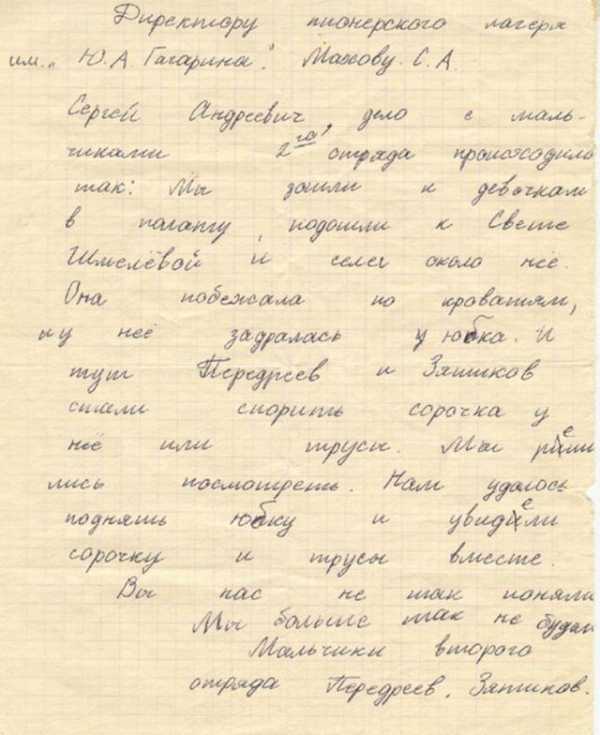 Директору пионерского лагеря
им. „Ю.А. Гагарина". Махову. С.А.
Сергей Андреевич, дело с маль-
чиками 2го отряда происходило
так: Мы зашли к девочкам
в палату, подошли к Свете
Шмелёвой и сели около неё.
Она побежала по кроватям,
и у неё задралась у юбка. И
тут Передреев и Зятиков
стали спорить сорочка у
неё или трусы. Мы реши
лись посмотреть. Нам удалось
поднять юбку и увидели
сорочку и трусы вместе.
Вы нас не так поняли
Мы больше так не будем
Мальчики второго
отряда Передреев, Зятиков.